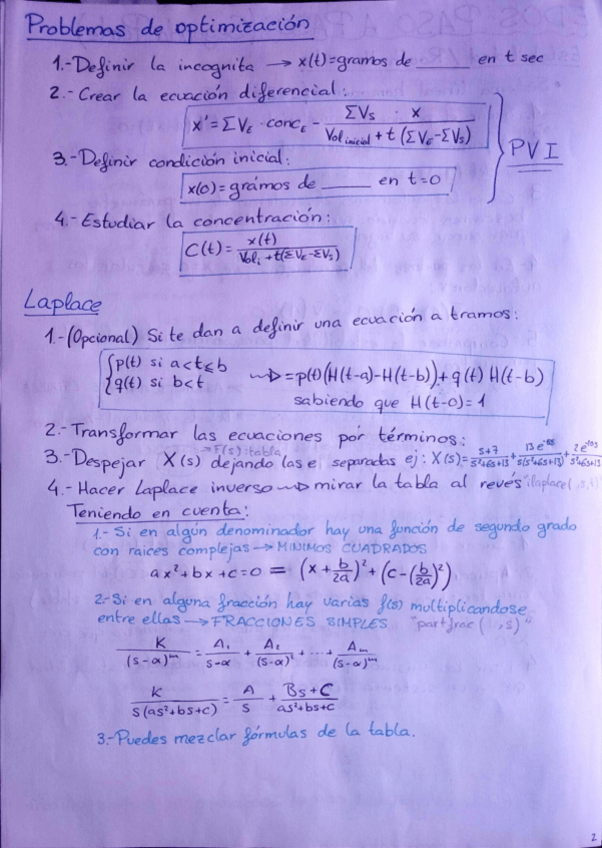 Problemas de optimización
1.-Definir la incognita → x(t)=gramos de ____ en t sec
2.-Crear la ecuación diferencial:
x'=ΣV_E · conc_E - (ΣV_S · x)/(Vol_inicial + t(ΣV_E-ΣV_S))
PVI
3.-Definir condición inicial:
x(0)=gramos de ____ en t=0
4.-Estudiar la concentración:
C(t)= x(t)/(Vol_i + t(ΣV_E-ΣV_S))
Laplace
1.-(Opcional) Si te dan a definir una ecuación a tramos:
{p(t) si a<t≤b
{q(t) si b<t
⇝ =p(t)(H(t-a)-H(t-b))+q(t) H(t-b)
sabiendo que H(t-0)=1
2.-Transformar las ecuaciones por términos:
=F(s):tabla
3.-Despejar X(s) dejando las e separadas ej: X(s)= (s+7)/(s²+6s+13) + 13e^-8s/(s(s²+6s+13)) + 2e^-10s/(s²+6s+13)
4.-Hacer Laplace inverso ⇝ mirar la tabla al revés "ilaplace( ,s,t)"
Teniendo en cuenta:
1.- Si en algún denominador hay una función de segundo grado
con raices complejas → MINIMOS CUADRADOS
ax²+bx+c=0 = (x+b/2a)²+(c-(b/2a)²)
2.-Si en alguna fracción hay varias f(s) multiplicandose
entre ellas → FRACCIONES SIMPLES "partfrac( ,s)"
K/(s-α)^m = A₁/(s-α) + A₂/(s-α)² + ... + Aₘ/(s-α)^m
K/(s(as²+bs+c)) = A/s + (Bs+C)/(as²+bs+c)
3.-Puedes mezclar fórmulas de la tabla.
2